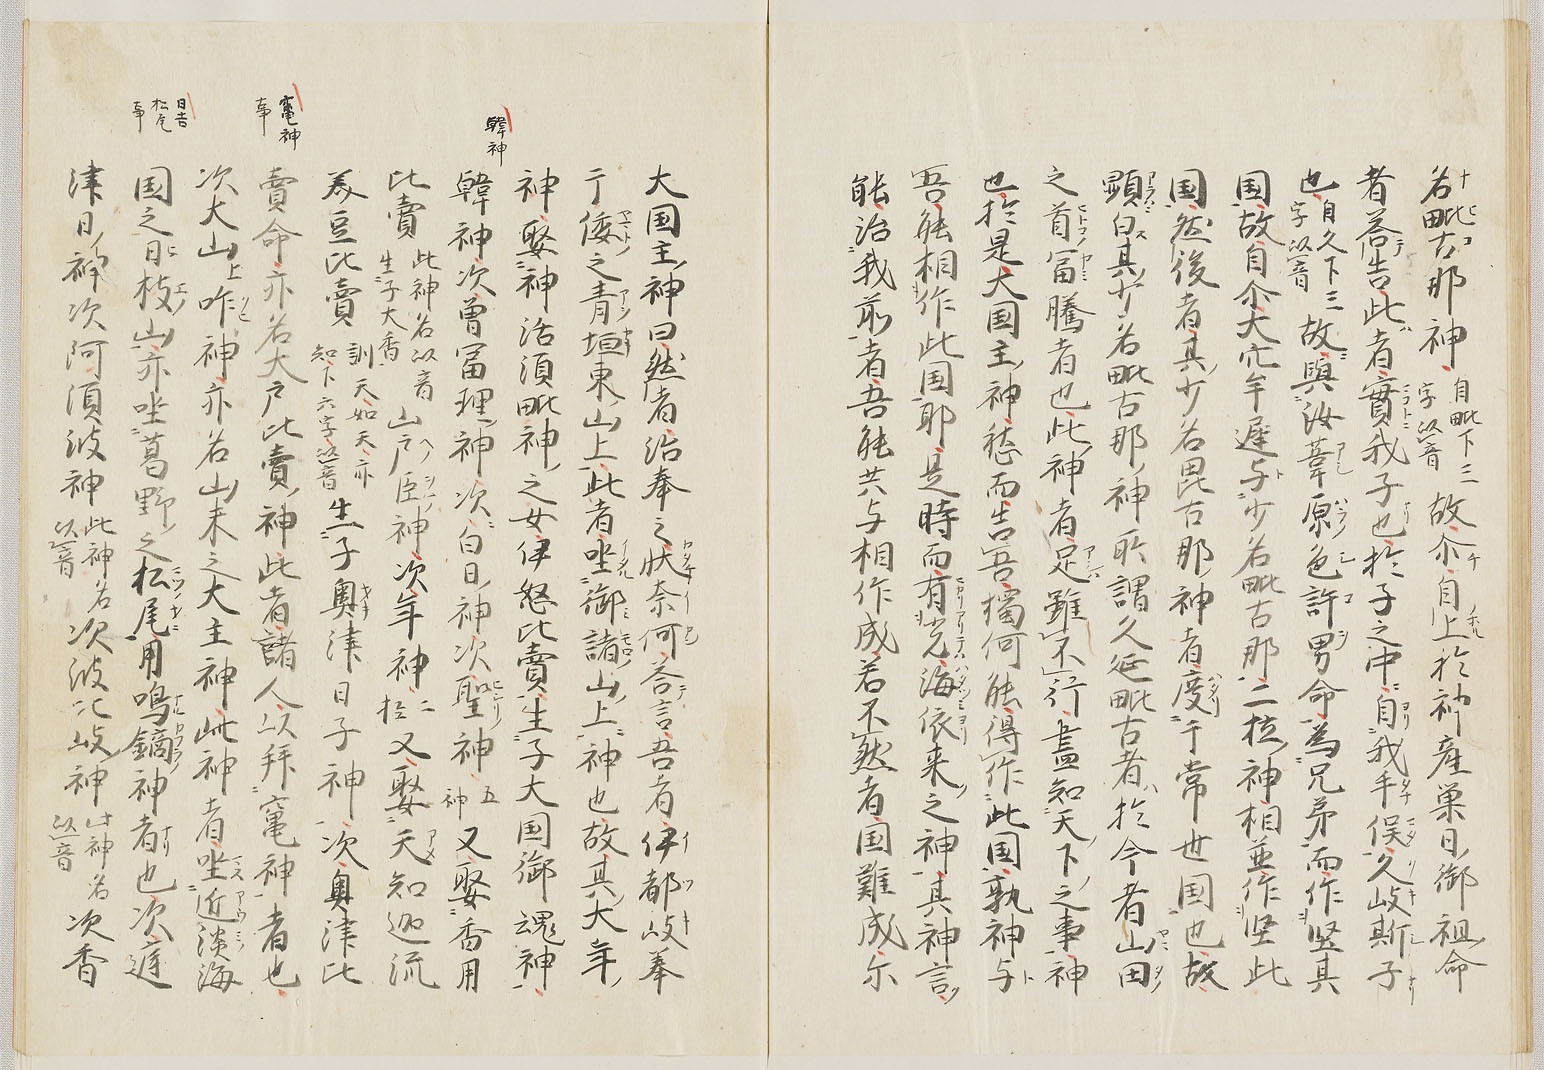 名毗古那神 自毗下三字以音 故尒白上於神産巣日御祖命
者荅告此者實我子也於子之中自我手俣久岐斯子
也 自久下三字以音 故與汝葦原色許男命為兄弟而作竪其
国故自尒大穴牟遅与少名毗古那二柱神相並作坚此
国然後者其少名毘古那神者度于常世国也故
顕白其少名毗古那神所謂久延毗古者於今者山田
之首冨騰者也此神者足雖不行盡知天下之事神
也於是大国主神愁而告吾獨何能得作此国孰神与
吾能相作此国耶是時而有光海依来之神其神言
能治我前者吾能共与相作成若不然者国難成尓
大国主神曰然者治奉之状奈何荅言吾者伊都岐奉
于倭之青垣東山上此者坐御諸山上神也故其大年
神娶神活須毗神之女伊怒比賣生子大国御魂神
韓神
韓神次曽冨理神次白日神次聖神 五神 又娶香用
比賣 此神名以音 生子大香山戸臣神次年神 二柱 又娶天知迦流
美豆比賣 訓天如天亦知下六字以音 生子奥津日子神次奥津比
竃神事
賣命亦名大戸比賣神此者諸人以拜竃神者也
次大山上咋神亦名山末之大主神此神者坐近淡海
日吉松尾事
国之日枝山亦坐葛野之松尾用鳴鏑神者也次庭
津日神次阿須波神 此神名以音 次波比岐神 此神名以音 次香